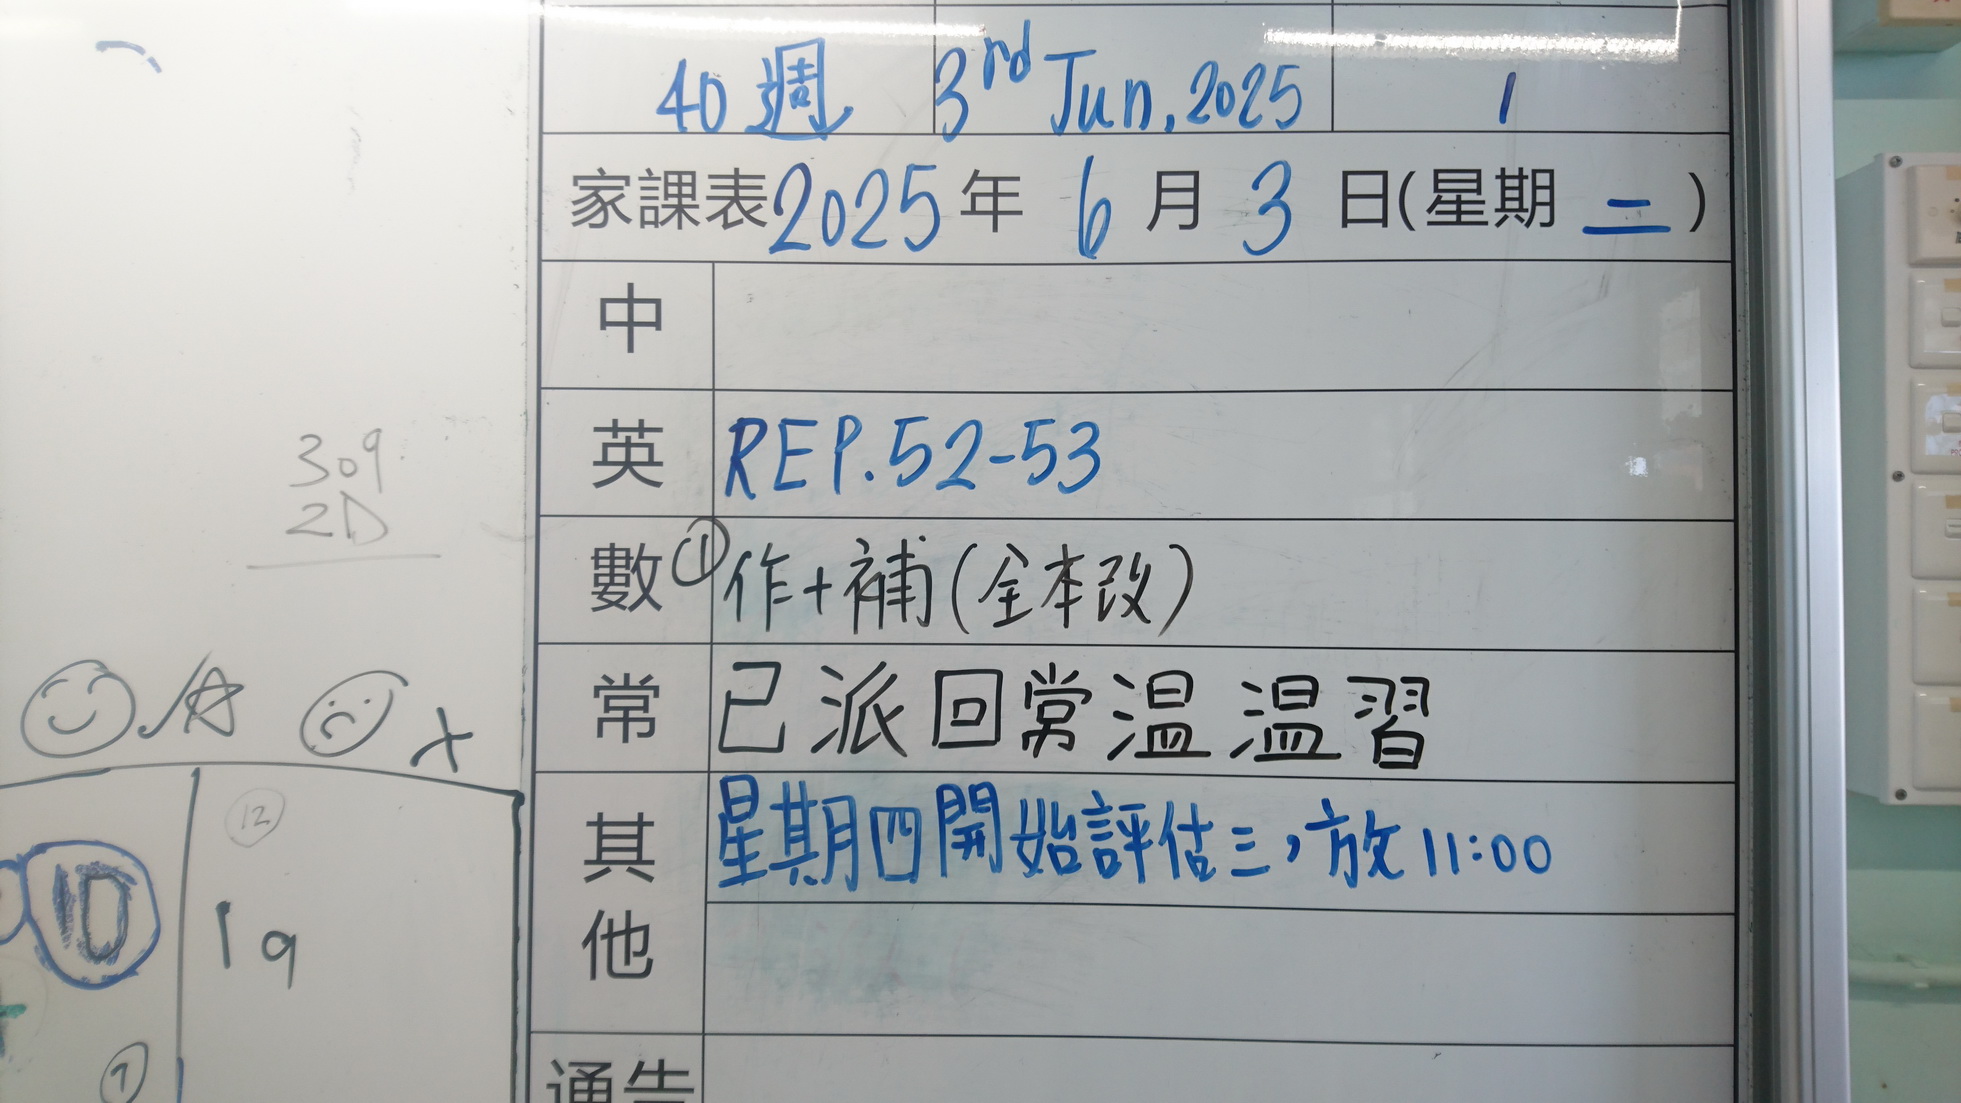 40週 3rd Jun, 2025 1
家課表 2025 年 6 月 3 日(星期 二)
中
英 REP.52-53
數 ① 作+補(全本改)
常 已派回常温 温習
其他 星期四開始評估三,放11:00
通告
309
2D
12
10
19
7